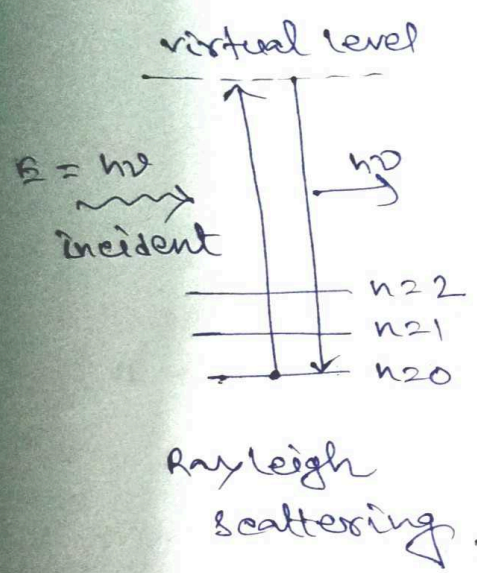 virtual level
E = hν
hν
incident
n=2
n=1
n=0
Rayleigh
scattering.